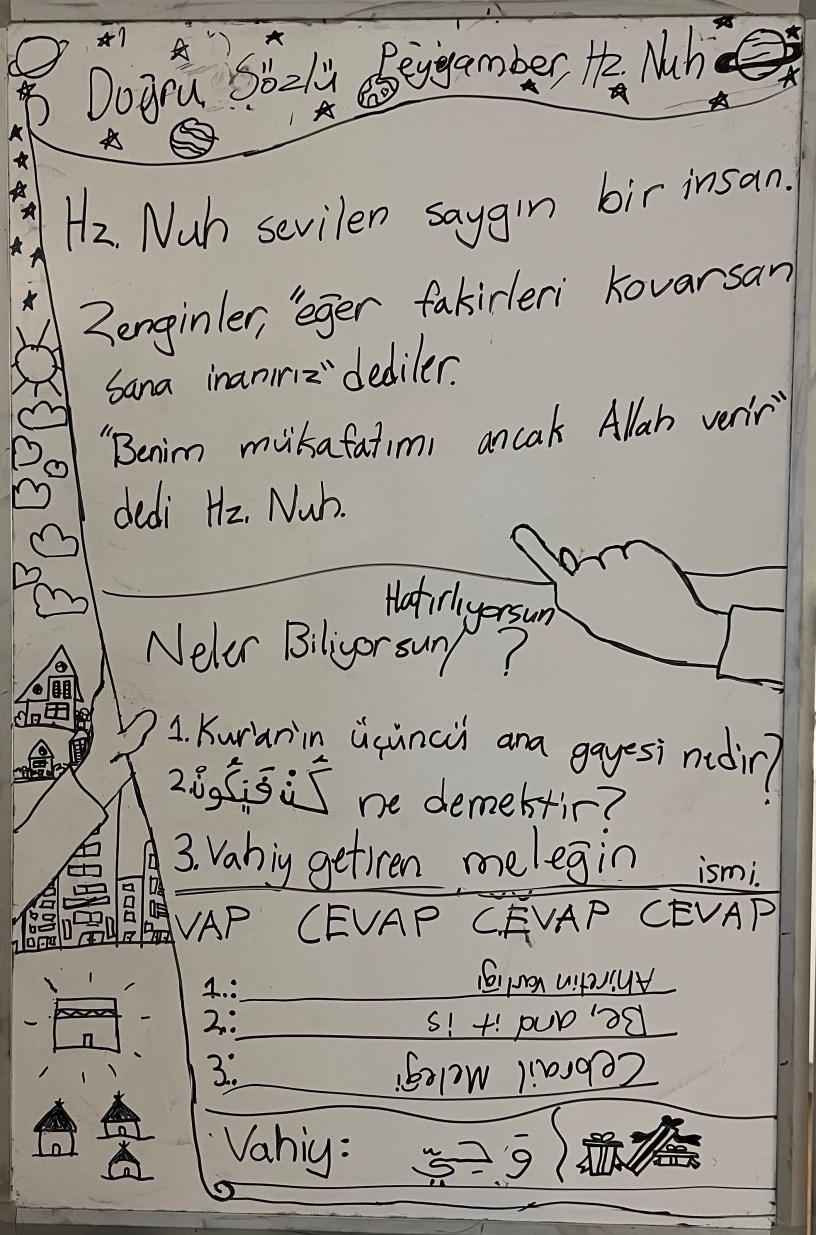 Doğru Sözlü Peygamber, Hz. Nuh
Hz. Nuh sevilen saygın bir insan.
Zenginler, "eğer fakirleri kovarsan
sana inanırız" dediler.
"Benim mükafatımı ancak Allah verir"
dedi Hz. Nuh.
Hatırlıyorsun
Neler Biliyorsun/ ?
1. Kur'an'ın üçüncü ana gayesi nedir?
2. كُنْ فَيَكُونُ ne demektir?
3. Vahiy getiren meleğin ismi.
VAP CEVAP CEVAP CEVAP
1.: Ahiretin varlıgı
2.: Be, and it is
3.: Cebrail Melegi
Vahiy: